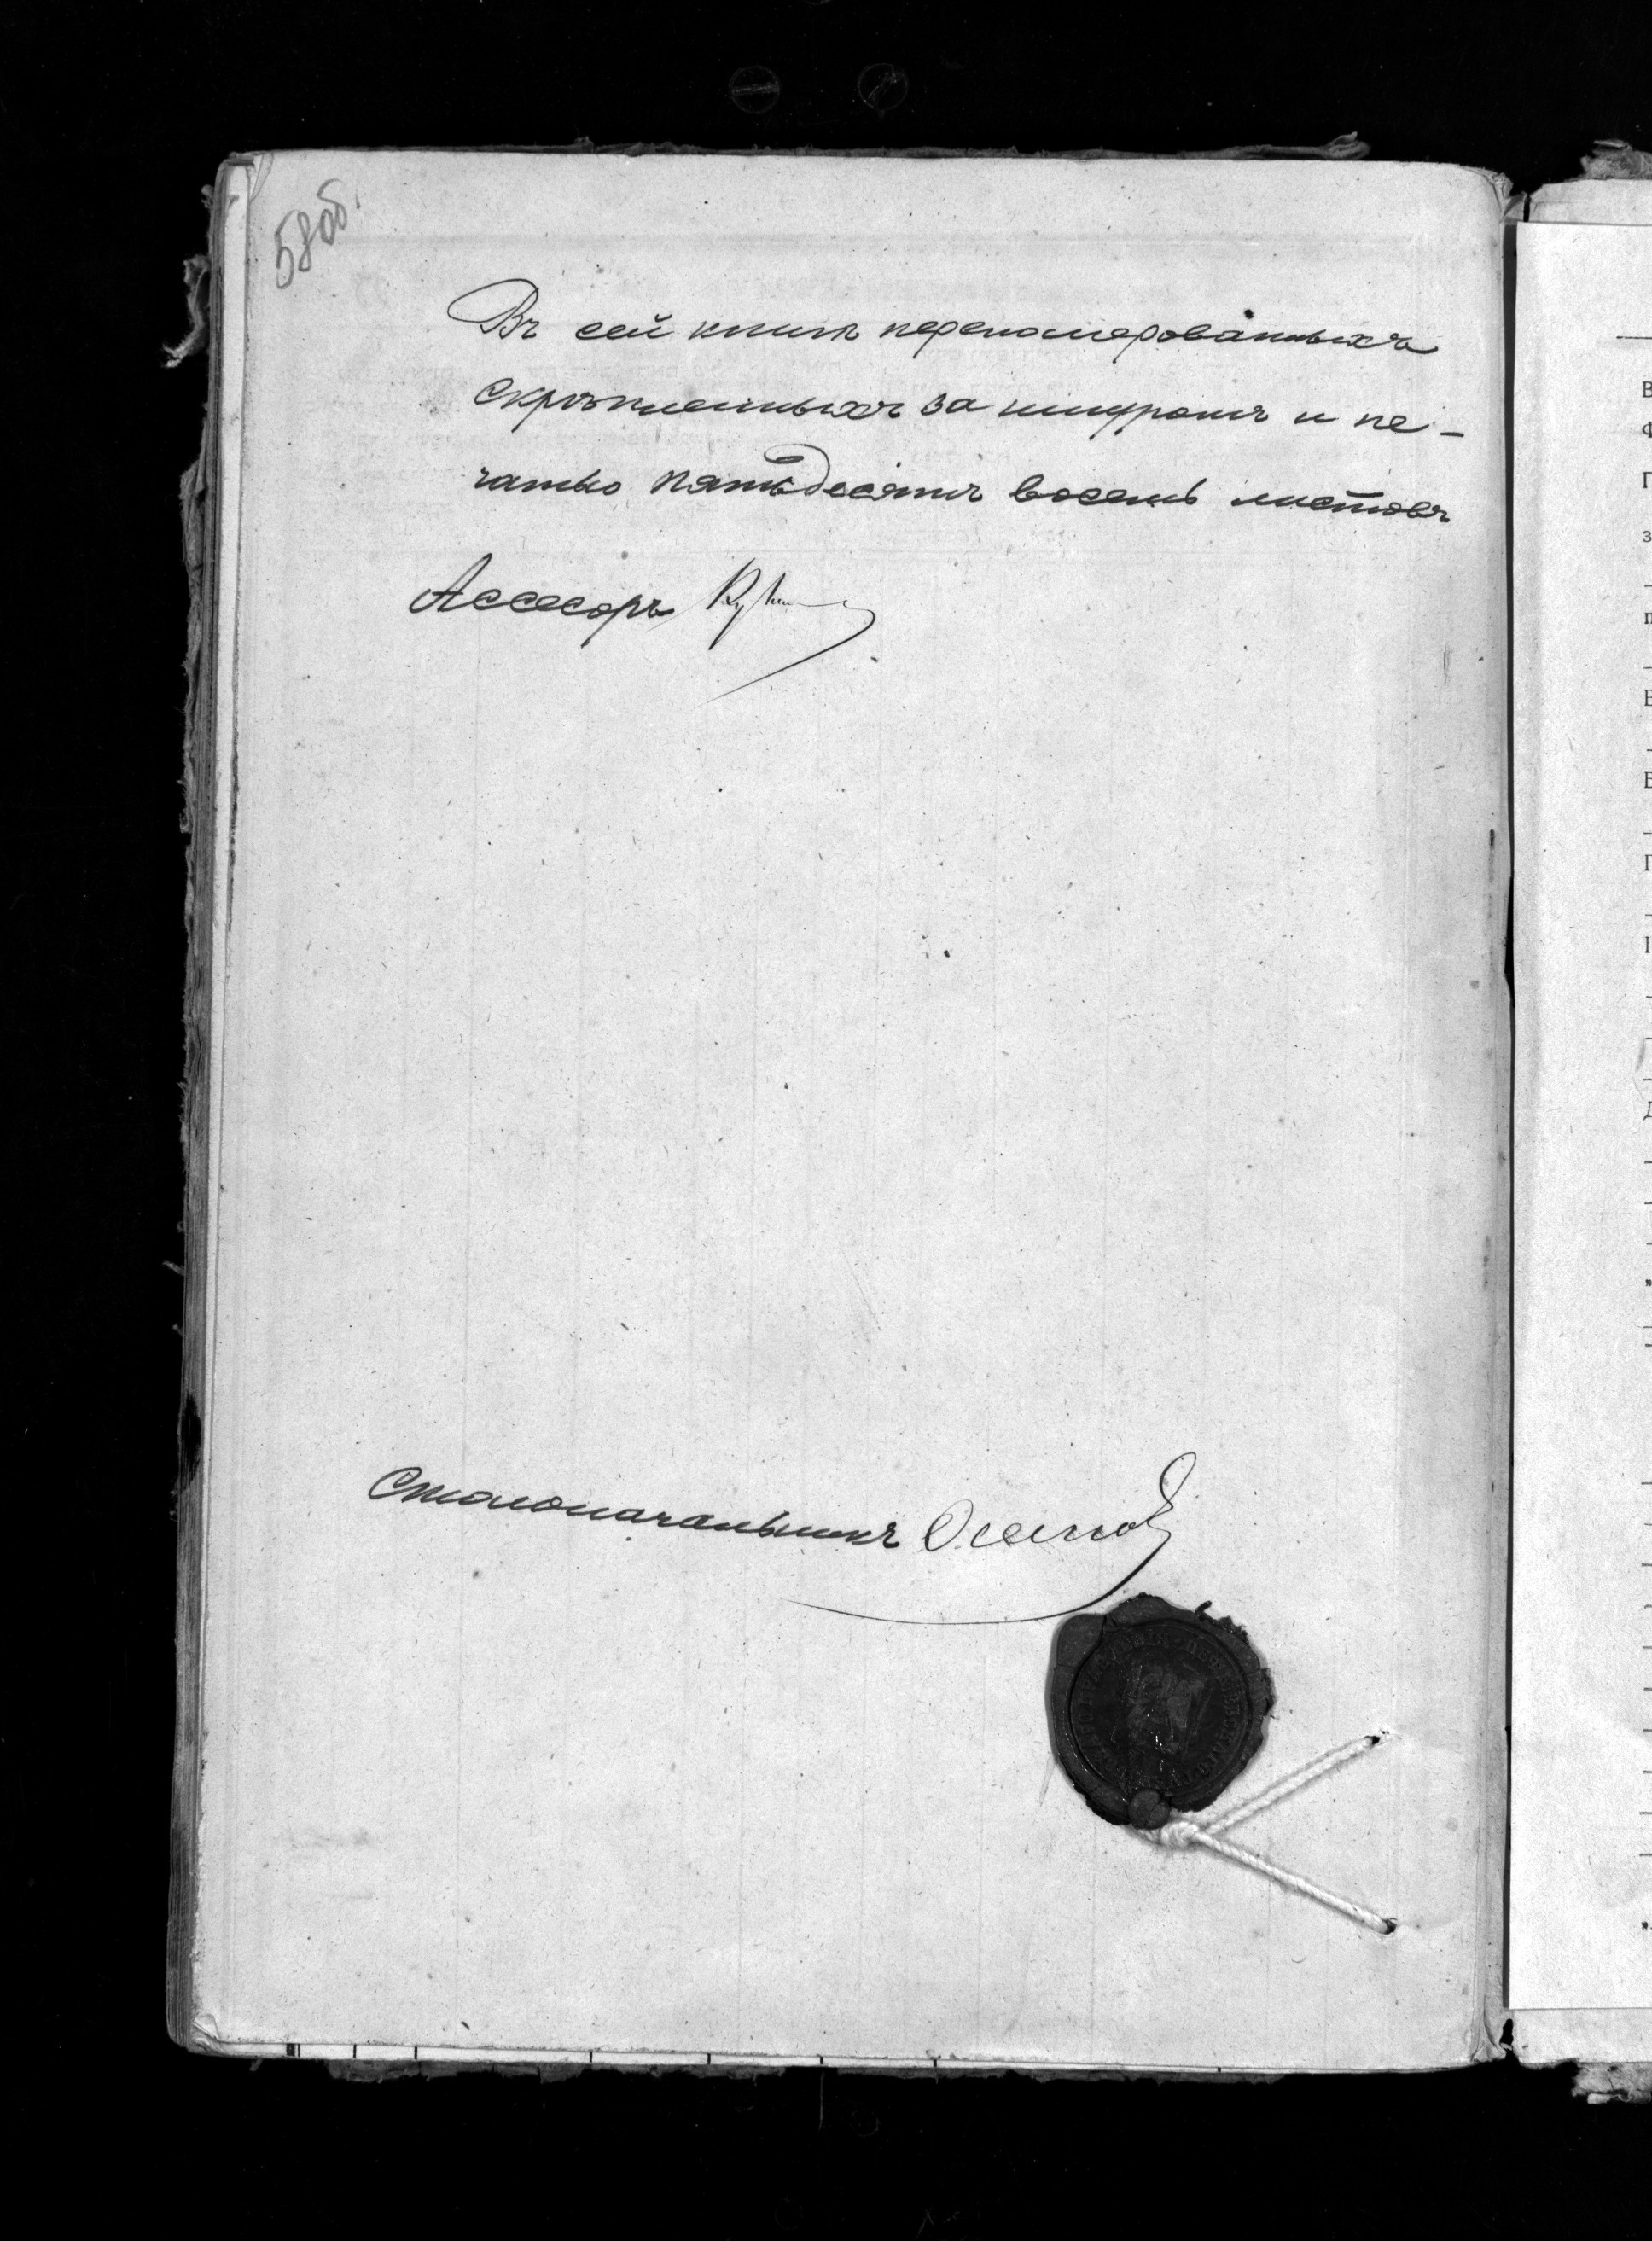 58об.
Въ сей книгѣ переномерованныхъ
скрѣпленныхъ за шнуромъ и пе-
чатью пятьдесятъ восемь листовъ
Ассесоръ
Столоначальникъ